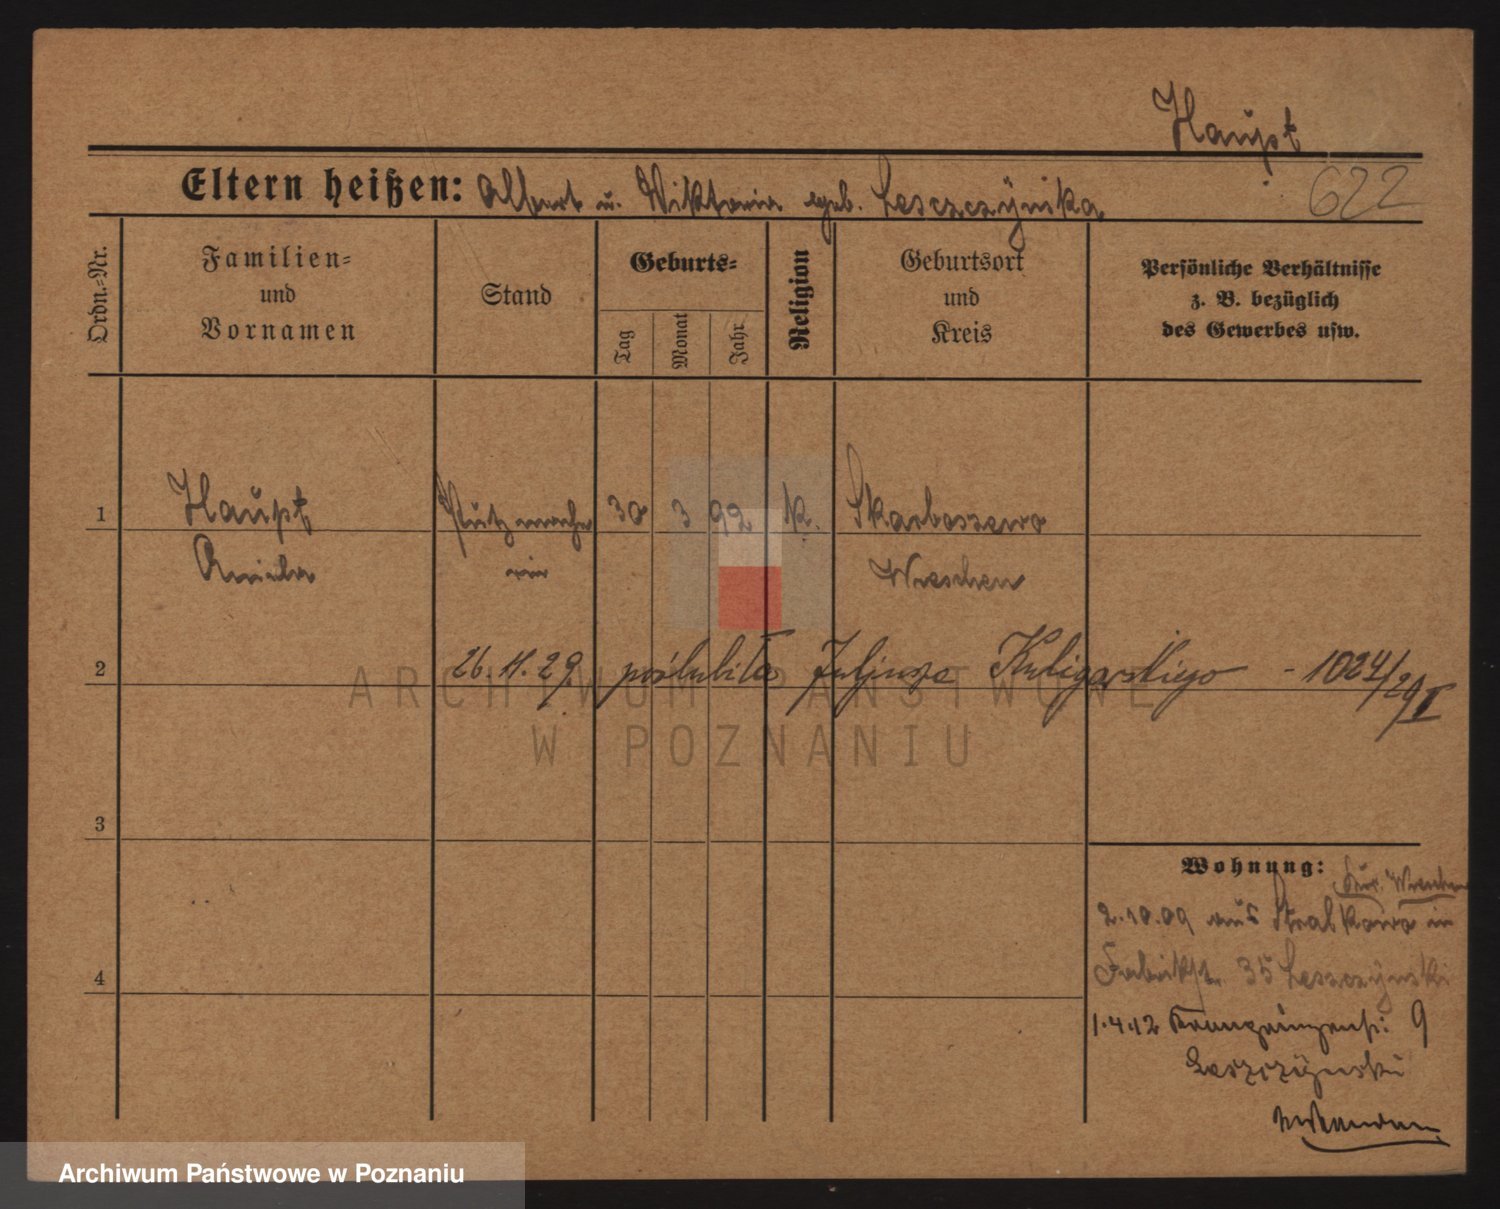 Haupt
Eltern heißen: Albert u. Wiktoria geb. Lesczczyńska
622
Ordn.-Nr.
Familien-
und
Vornamen
Stand
Geburts-
Tag
Monat
Jahr
Religion
Geburtsort
und
Kreis
Persönliche Verhältnisse
z. B. bezüglich
des Gewerbes usw.
1
Haupt
Putzmache
30
3
92
K.
Skarboszewo
Aniela
rin
Wreschen
2
26.11.29 poślubiła Juljusza Kuligowskiego - 1024/29 I
ARCHIWUM PAŃSTWOWE
W POZNANIU
3
Wohnung:
Kr. Wreschen
2.10.09 aus Stralkowo in
Fabrikstr. 35 Leszczynski
4
1.4.12 Kronprinzenstr: 9
Leszczynski
Archiwum Państwowe w Poznaniu